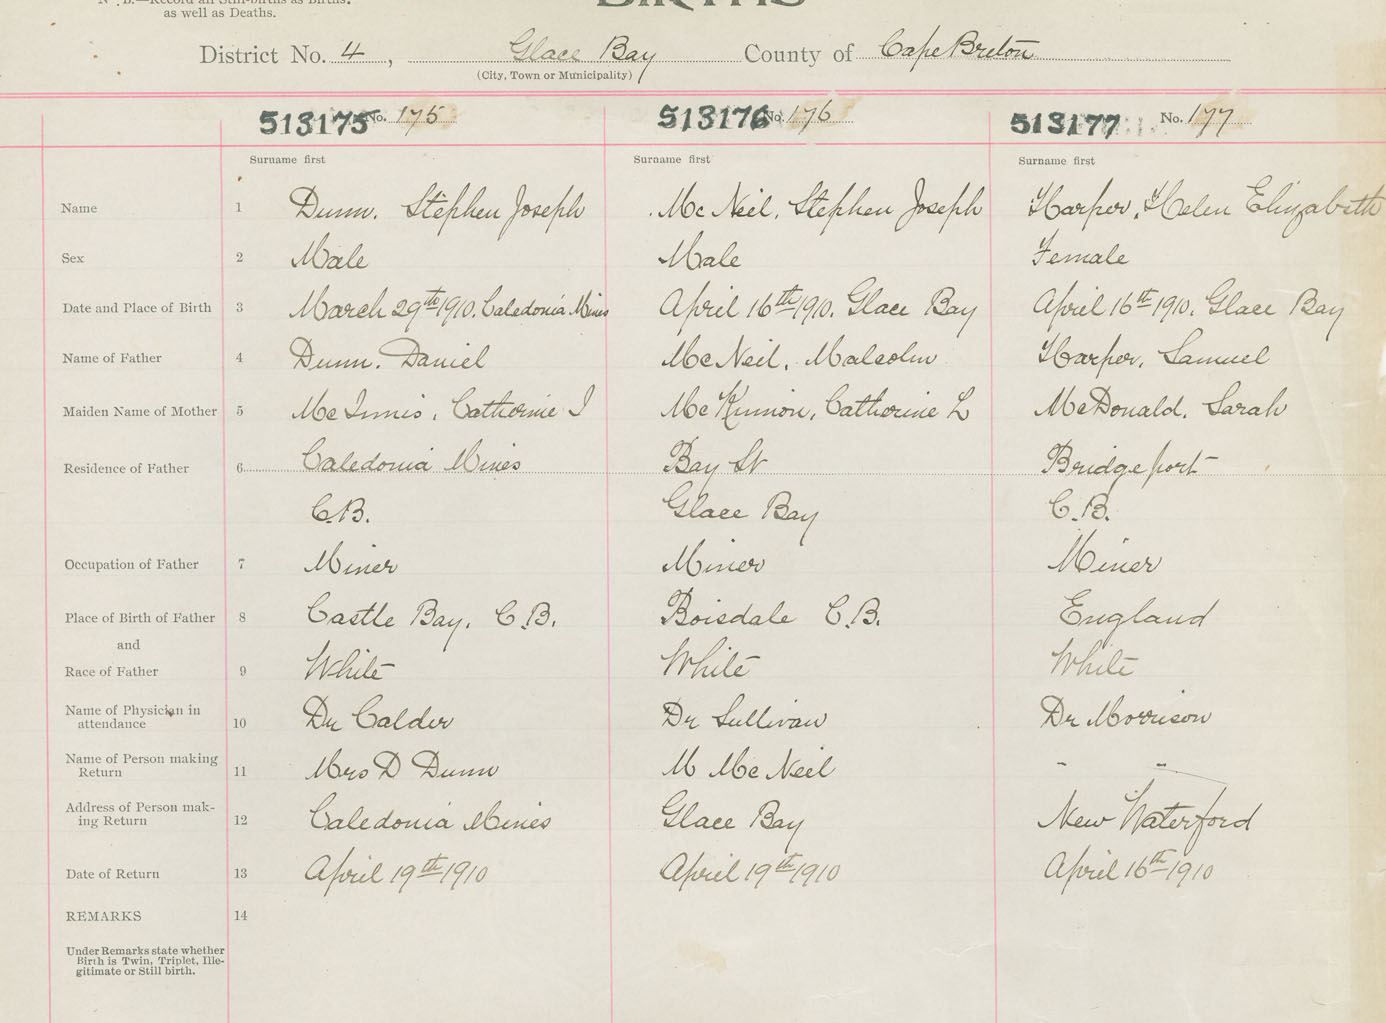 N. B.—Record all Still-births as Births.
as well as Deaths.
BIRTHS
District No. 4, Glace Bay County of Cape Breton
(City, Town or Municipality)
513175 No. 175 513176 No. 176 513177 No. 177
Surname first Surname first Surname first
Name 1 Dunn. Stephen Joseph Mc Neil, Stephen Joseph Harper, Helen Elizabeth
Sex 2 Male Male Female
Date and Place of Birth 3 March 29th 1910. Caledonia Mines April 16th 1910. Glace Bay April 16th 1910. Glace Bay
Name of Father 4 Dunn. Daniel Mc Neil, Malcolm Harper, Samuel
Maiden Name of Mother 5 Mc Innis, Catherine J McKinnon, Catherine L McDonald, Sarah
Residence of Father 6 Caledonia Mines Bay St Bridgeport
C.B. Glace Bay C.B.
Occupation of Father 7 Miner Miner Miner
Place of Birth of Father 8 Castle Bay, C.B. Boisdale C.B. England
and
Race of Father 9 White White White
Name of Physician in
attendance 10 Dr Calder Dr Sullivan Dr Morrison
Name of Person making
Return 11 Mrs D Dunn M Mc Neil " "
Address of Person mak-
ing Return 12 Caledonia Mines Glace Bay New Waterford
Date of Return 13 April 19th 1910 April 19th 1910 April 16th 1910
REMARKS 14
Under Remarks state whether
Birth is Twin, Triplet, Ille-
gitimate or Still birth.